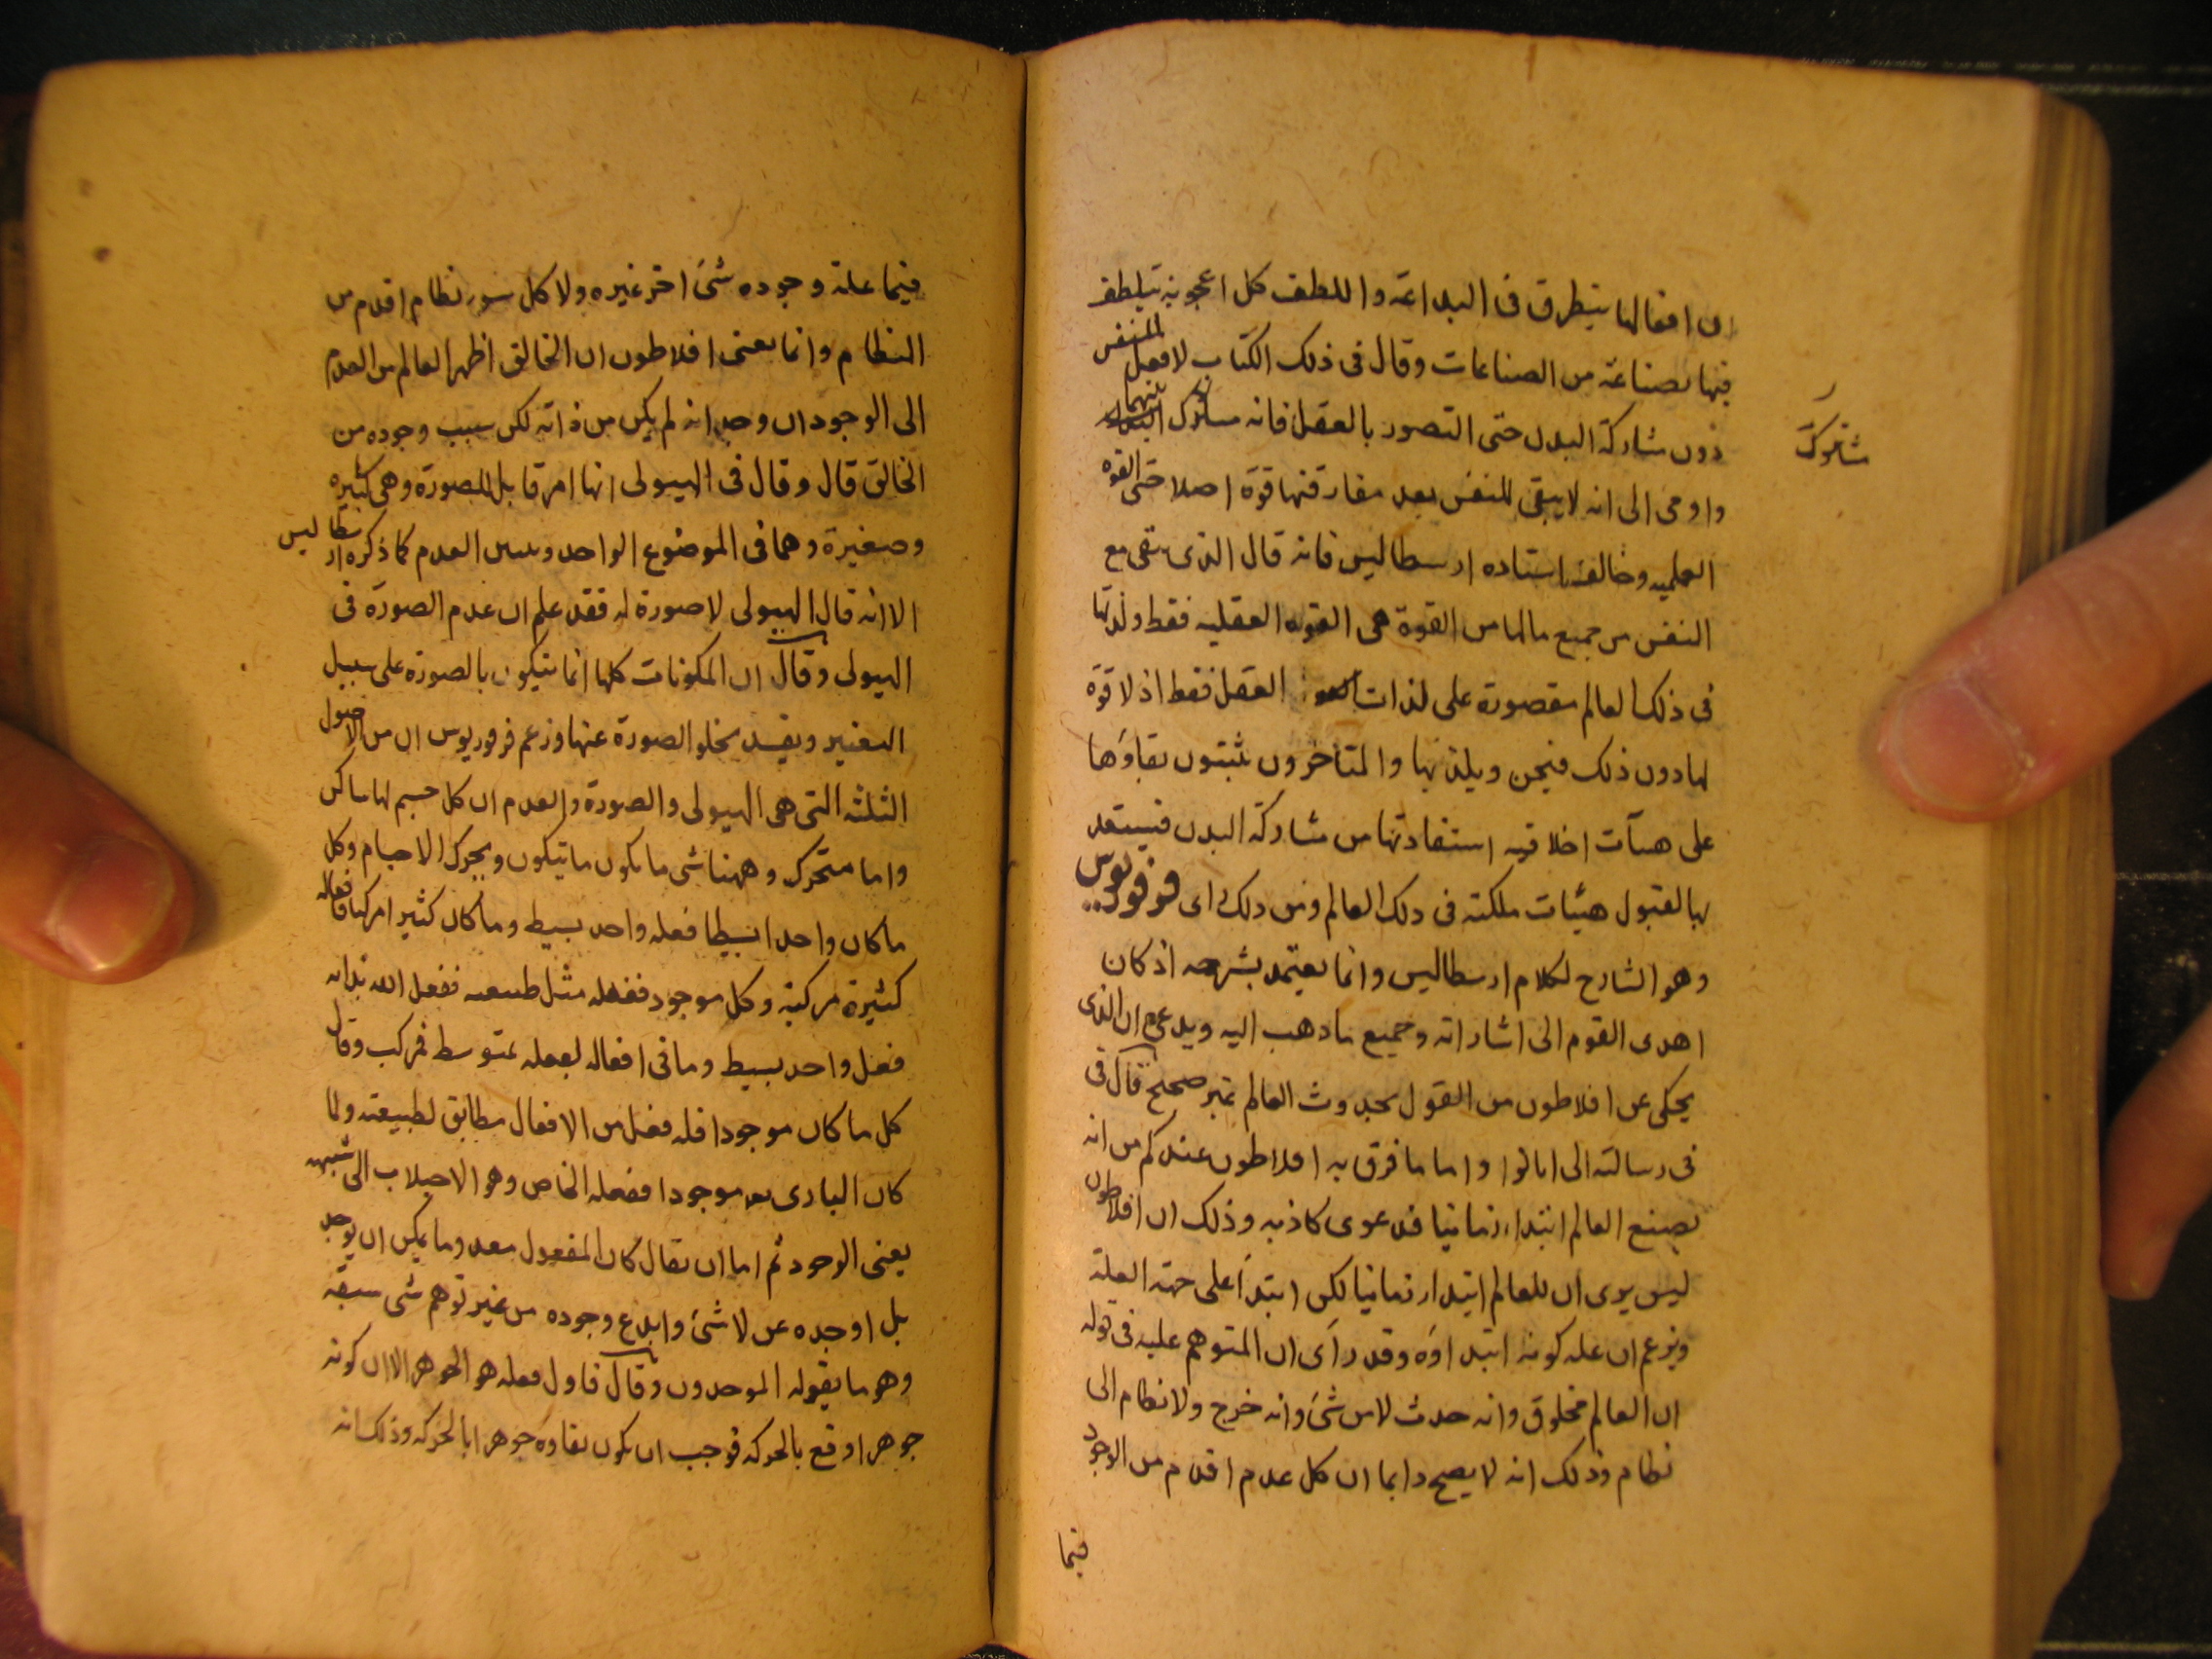 ان افعالها يتطرق فى البداعة واللطف كل اعجوبة تيلطف
فيها بصناعة من الصناعات وقال فى ذلك الكتاب لا فعل للنفس
دون مشاركة البدن حتى التصور بالعقل فانه مشترك بينهما
مشترك
واومى الى انه لا يبقى للنفس بعد مفارقتها قوة اصلا حتى القوه
العلميه وخالف استاده ارسطاليس فانه قال الذى يبقى مع
النفس من جميع مالها من القوة هى القوه العقليه فقط ولذتها
فى ذلك العالم مقصورة على لذات العقل فقط اذ لا قوة
لها دون ذلك فيحس ويلذ بها والمتاخرون يثبتون بقاؤها
على هيآت اخلاقيه استفادتها من مشاركة البدن فيستعد
بها لقبول هيئات ملكيه فى ذلك العالم ومن ذلك راى فرفوريوس
وهو الشارح لكلام ارسطاليس وانما يعتمد بشرحه اذ كان
اهدى القوم الى اشاراته وجميع ما ذهب اليه ويدعى ان الذى
يحكى عن افلاطون من القول بحدوث العالم غير صحيح قال فى
فى رسالته الى ابانوا واما ما فرق به افلاطون عندكم من انه
يصنع العالم ابتداء زمانيا فدعوى كاذبه وذلك ان افلاطون
ليس يرى ان للعالم ابتداء زمانيا لكن ابتدأ على جهة العلة
ويزعم ان علة كونه ابتداؤه وقد رأى ان المتوهم عليه فى قوله
ان العالم مخلوق وانه حدث لا من شئ وانه خرج ولا نظام الى
نظام وذلك انه لا يصح دايما ان كل عدم اقدم من الوجود
فيما
فيما علة وجوده شئ اخر غيره ولا كل سوء نظام اقدم من
النظام وانما يعنى افلاطون ان الخالق اظهر العالم من العدم
الى الوجود ان وجد انه لم يكن من ذاته لكن سبب وجوده من
الخالق قال وقال فى الهيولى انها امر قابل للصورة وهى كثيره
وصغيرة وهما فى الموضوع الواحد العدم كما ذكره ارسطاليس
الا انه قال الهيولى لا صورة له فقد علم ان عدم الصورة فى
الهيولى وقال ان المكونات كلها انما يتكون بالصورة على سبيل
التغير ويفسد بخلو الصورة عنها وزعم فرفوريوس ان من الاصول
الثلثه التى هى الهيولى والصورة والعدم ان كل جسم اما ساكن
واما متحرك وههنا شى ما يكون ما يتكون ويحرك الاجسام وكل
ما كان واحدا بسيطا فعله واحد بسيط وما كان كثيرا مركبا فافعاله
كثيرة مركبة وكل موجود ففعله مثل طبيعته ففعل الله بذاته
فعل واحد بسيط وما فى افعاله يفعله بمتوسط فمركب وقال
كل ما كان موجودا فله فعل من الافعال مطابق لطبيعته ولما
كان البارى موجودا ففعله الخاص وهو الاجتلاب الى شبهه
يعنى الوجود ثم اما ان يقال كان المفعول معد وما يمكن ان يوجد
بل اوجده عن لا شئ وابدع وجوده من غير توهم شى سبقه
وهو ما يقوله الموحدون وقال فاول فعله هو الجوهر الا ان كونه
جوهرا وقع بالحركه فوجب ان يكون بقاوه جوهرا بالحركه وذلك انه